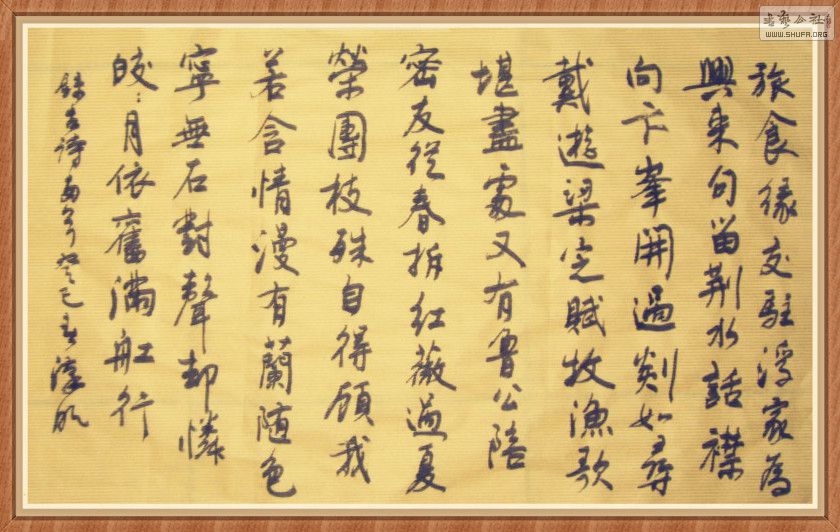 書藝公社
WWW.SHUFA.ORG
旅食緣交駐浮家為
興來句留荆水話襟
向卞峯開過剡如尋
戴遊梁定賦枚漁歌
堪畫處又有魯公陪
密友從春拆紅薇過夏
榮團枝殊自得顧我
若含情漫有蘭隨色
寧無石對聲却憐
皎〻月依舊滿舡行
錄古詩兩首癸巳春